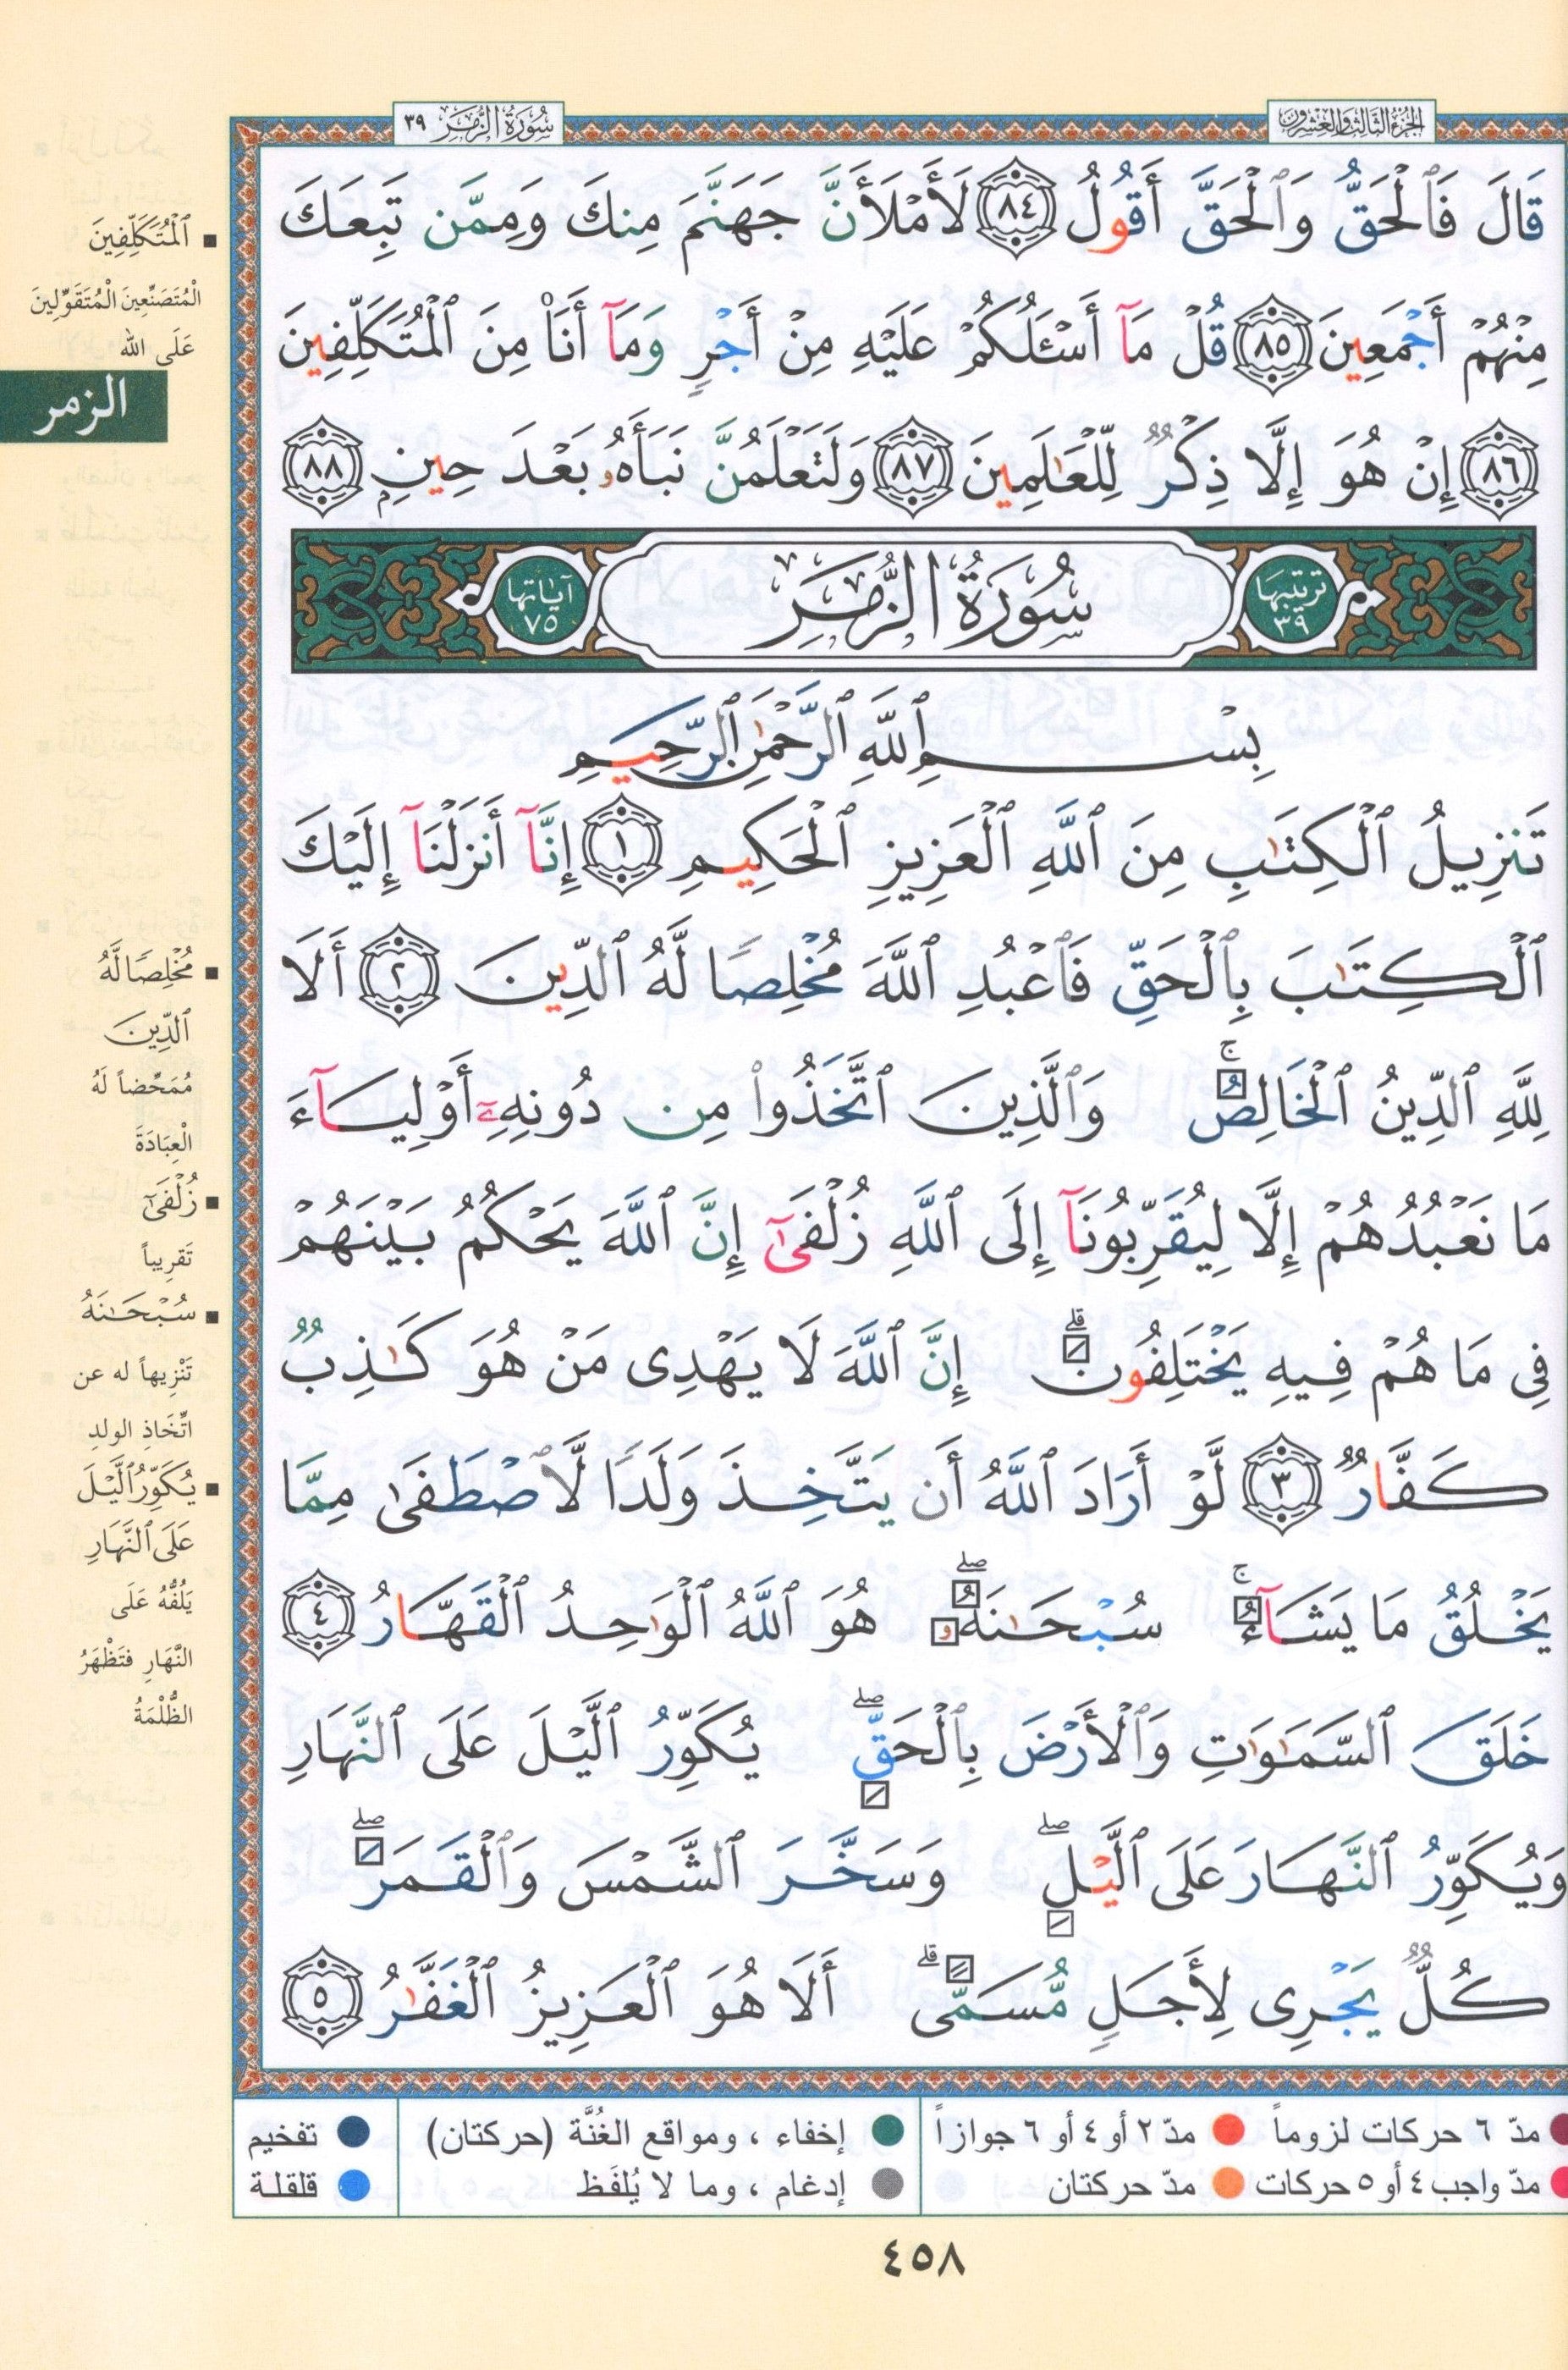 الجزء الثالث والعشرون
سورة الزمر ٣٩
قَالَ فَٱلْحَقُّ وَٱلْحَقَّ أَقُولُ ٨٤ لَأَمْلَأَنَّ جَهَنَّمَ مِنكَ وَمِمَّن تَبِعَكَ
مِنْهُمْ أَجْمَعِينَ ٨٥ قُلْ مَآ أَسْـَٔلُكُمْ عَلَيْهِ مِنْ أَجْرٍ وَمَآ أَنَا۠ مِنَ ٱلْمُتَكَلِّفِينَ
٨٦ إِنْ هُوَ إِلَّا ذِكْرٌ لِّلْعَٰلَمِينَ ٨٧ وَلَتَعْلَمُنَّ نَبَأَهُۥ بَعْدَ حِينٍۭ ٨٨
ترتيبها ٣٩ سُورَةُ الزُّمَرِ آياتها ٧٥
بِسْمِ ٱللَّهِ ٱلرَّحْمَٰنِ ٱلرَّحِيمِ
تَنزِيلُ ٱلْكِتَٰبِ مِنَ ٱللَّهِ ٱلْعَزِيزِ ٱلْحَكِيمِ ١ إِنَّآ أَنزَلْنَآ إِلَيْكَ
ٱلْكِتَٰبَ بِٱلْحَقِّ فَٱعْبُدِ ٱللَّهَ مُخْلِصًا لَّهُ ٱلدِّينَ ٢ أَلَا
لِلَّهِ ٱلدِّينُ ٱلْخَالِصُ ۚ وَٱلَّذِينَ ٱتَّخَذُوا۟ مِن دُونِهِۦٓ أَوْلِيَآءَ
مَا نَعْبُدُهُمْ إِلَّا لِيُقَرِّبُونَآ إِلَى ٱللَّهِ زُلْفَىٰٓ إِنَّ ٱللَّهَ يَحْكُمُ بَيْنَهُمْ
فِى مَا هُمْ فِيهِ يَخْتَلِفُونَ ۗ إِنَّ ٱللَّهَ لَا يَهْدِى مَنْ هُوَ كَٰذِبٌ
كَفَّارٌ ٣ لَّوْ أَرَادَ ٱللَّهُ أَن يَتَّخِذَ وَلَدًا لَّٱصْطَفَىٰ مِمَّا
يَخْلُقُ مَا يَشَآءُ ۚ سُبْحَٰنَهُۥ ۖ هُوَ ٱللَّهُ ٱلْوَٰحِدُ ٱلْقَهَّارُ ٤
خَلَقَ ٱلسَّمَٰوَٰتِ وَٱلْأَرْضَ بِٱلْحَقِّ ۖ يُكَوِّرُ ٱلَّيْلَ عَلَى ٱلنَّهَارِ
وَيُكَوِّرُ ٱلنَّهَارَ عَلَى ٱلَّيْلِ ۖ وَسَخَّرَ ٱلشَّمْسَ وَٱلْقَمَرَ ۖ
كُلٌّ يَجْرِى لِأَجَلٍ مُّسَمًّى ۗ أَلَا هُوَ ٱلْعَزِيزُ ٱلْغَفَّٰرُ ٥
ٱلْمُتَكَلِّفِينَ
الْمُتَصَنِّعِينَ الْمُتَقَوِّلِينَ
عَلَى الله
الزمر
مُخْلِصًا لَّهُ
ٱلدِّينَ
مُمَحِّضاً لَهُ
الْعِبَادَةَ
زُلْفَىٰٓ
تَقرِيباً
سُبْحَٰنَهُ
تَنْزِيهاً له عن
اتِّخَاذِ الولدِ
يُكَوِّرُ ٱلَّيْلَ
عَلَى ٱلنَّهَارِ
يَلُفُّهُ عَلَى
النَّهَارِ فَتَظْهَرُ
الظُّلْمَةُ
مدّ ٦ حركات لزوماً مدّ ٢ أو ٤ أو ٦ جوازاً
مدّ واجب ٤ أو ٥ حركات مدّ حركتان
إخفاء ، ومواقع الغُنَّة (حركتان)
إدغام ، وما لا يُلفَظ
تفخيم
قلقلة
٤٥٨